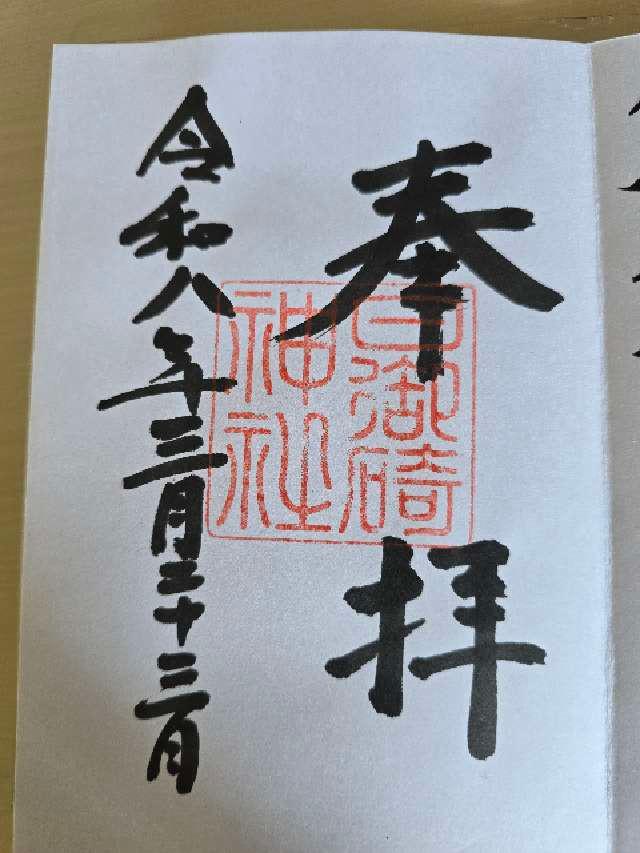 奉拝
日御碕
神社
令和八年三月二十三日